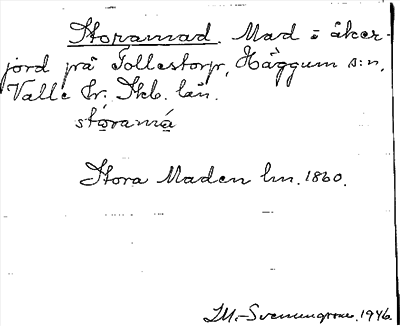 Storamad. Mad i åker-
jord på Tollestorp, Häggum s:n,
Valle hr; Skb. län.
stɷramá
Stora Maden lm. 1860.
1946.